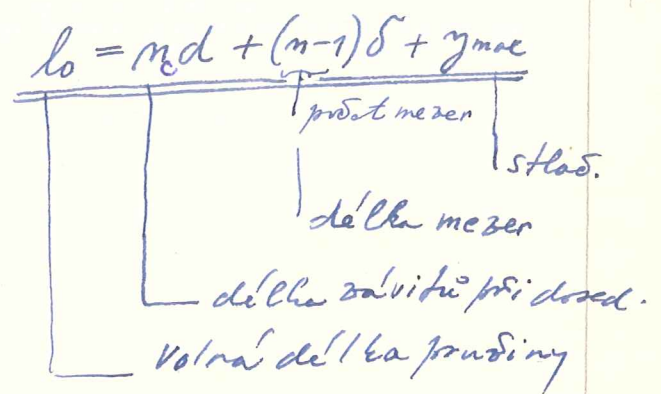 l₀ = n꜀d + (n-1)δ + ymax
počet mezer
stlač.
délka mezer
délka závitů při dosed.
volná délka pružiny